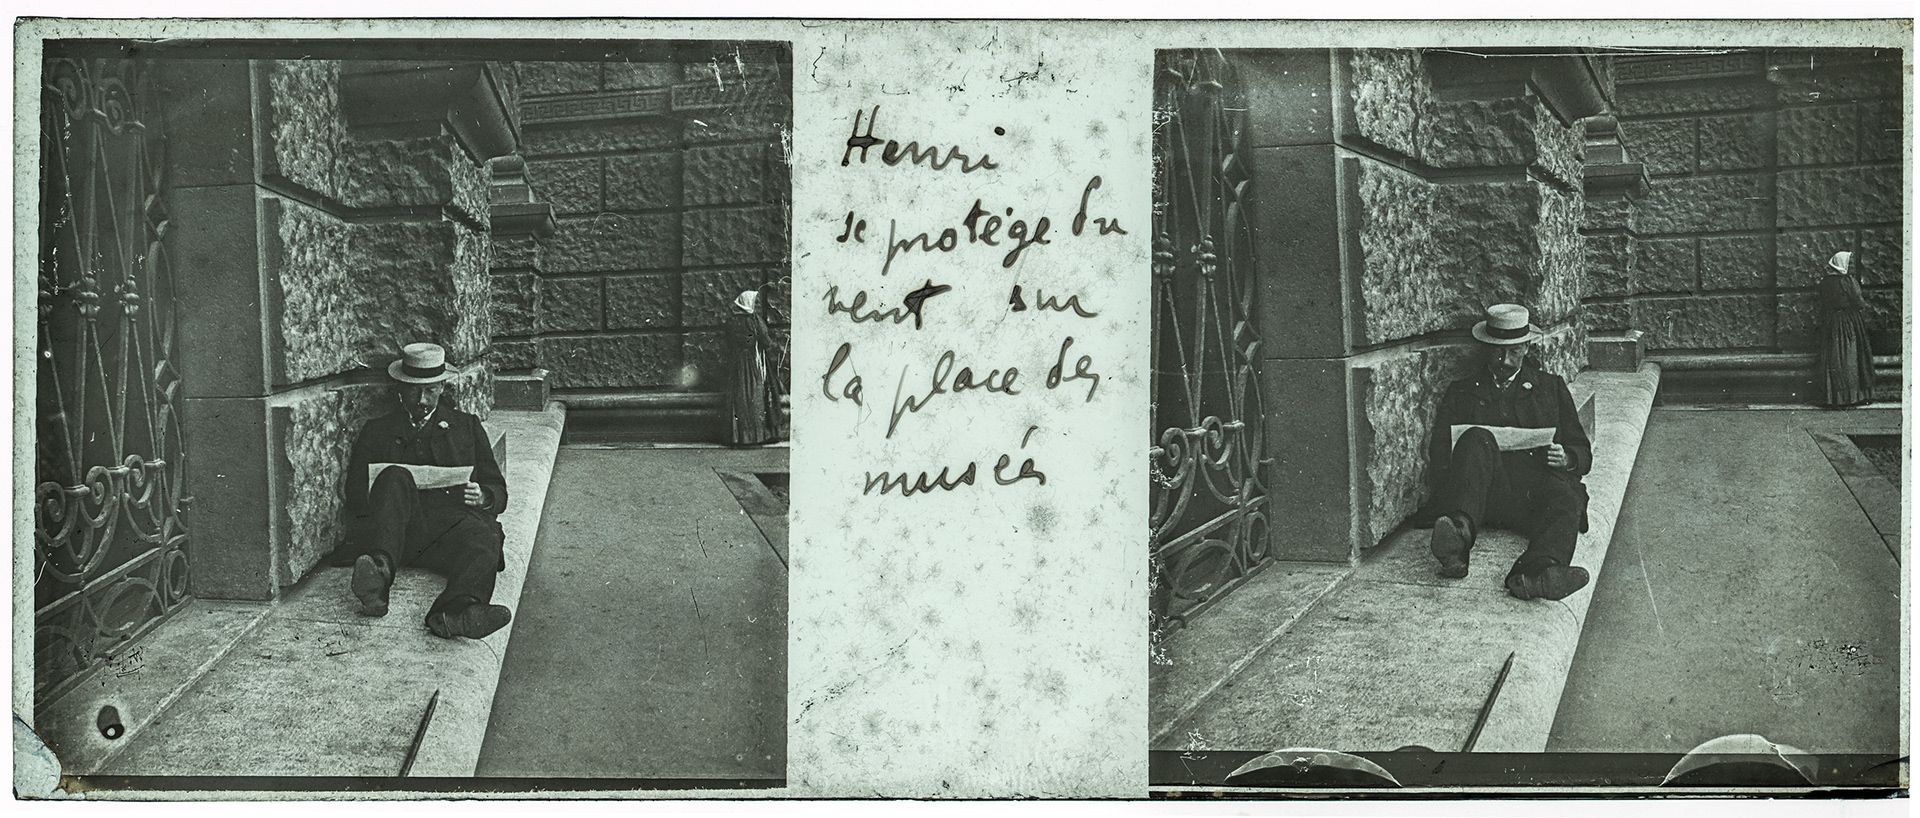 Henri
se protège du
vent sur
la place des
musées